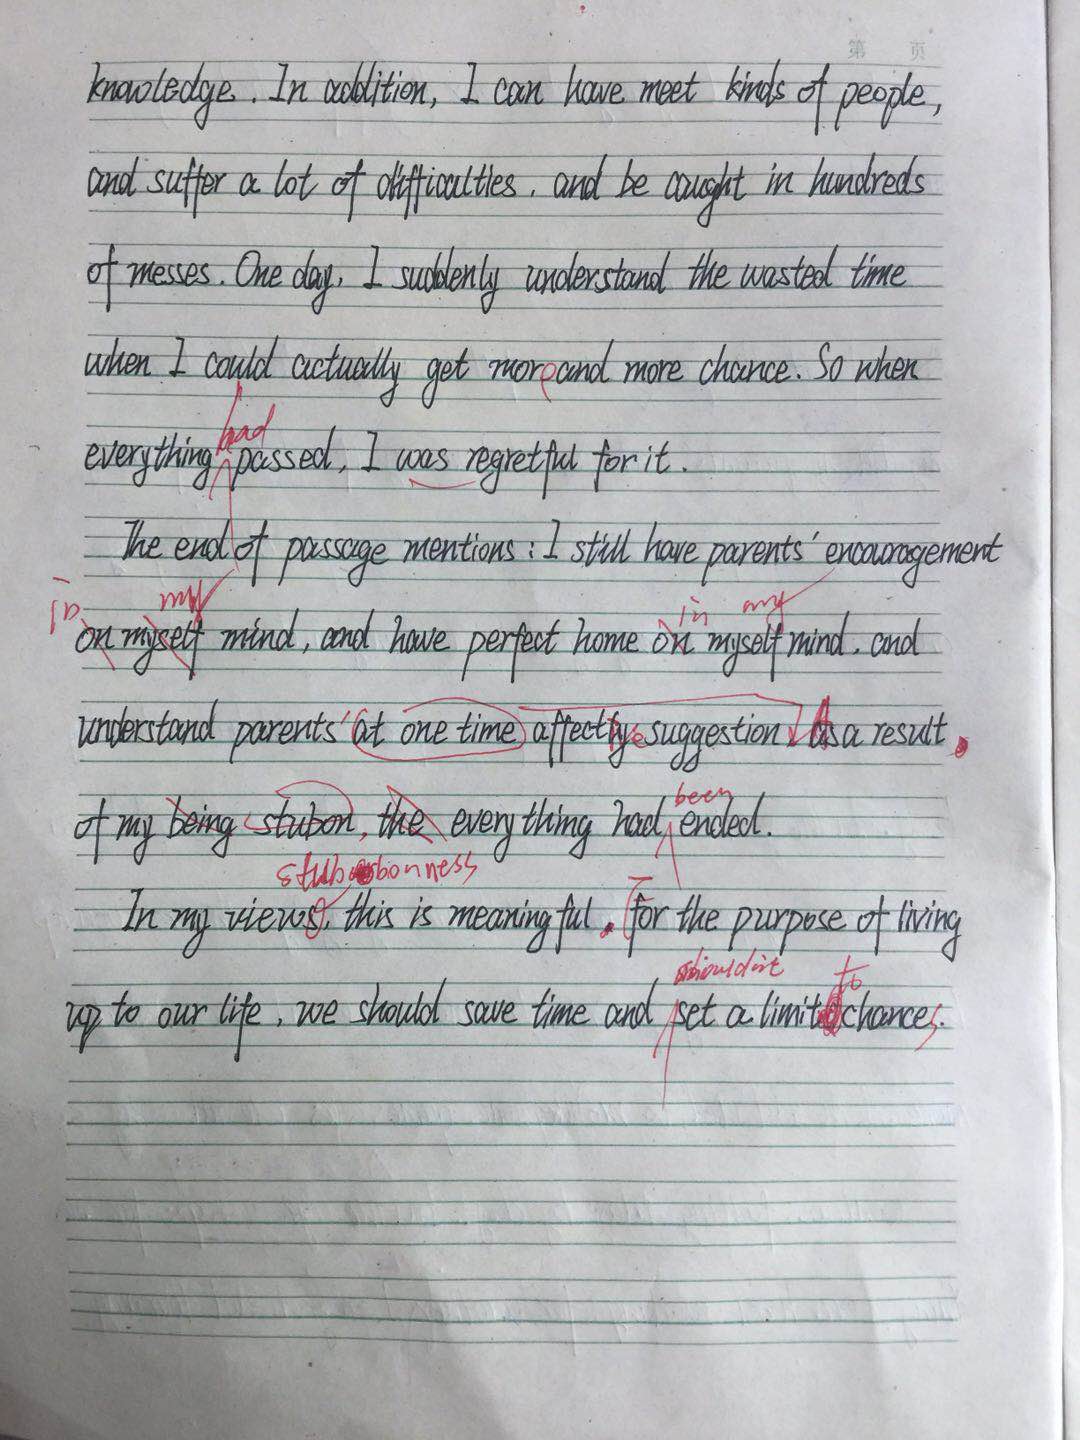 第 页
knowledge. In addition, I can have meet kinds of people,
and suffer a lot of difficulties. and be caught in hundreds
of messes. One day, I suddenly understand the wasted time
when I could actually get more and more chance. So when
had
everything passed, I was regretful for it.
The end of passage mentions: I still have parents' encouragement
in my in my
on myself mind, and have perfect home on myself mind. and
understand parents' at one time affectly suggestion. As a result.
been
of my being stubon, the everything had ended.
stubbornness
In my views, this is meaningful. for the purpose of living
shouldn't to
up to our life, we should save time and set a limit chances.